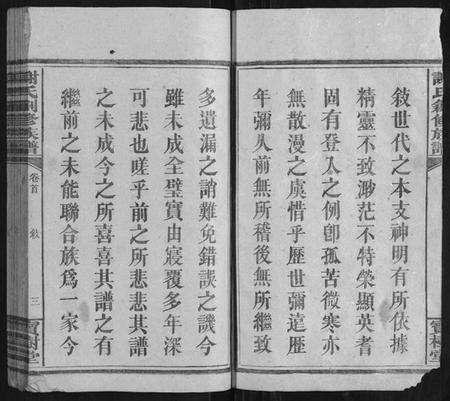 謝氏創修族譜
寶樹堂
敍世代之本支神明有所依據
精靈不致渺茫不特榮顯英耆
固有登入之例卽孤苦微寒亦
無散漫之虞惜乎歷世彌遠歷
年彌久前無所稽後無所繼致
多遺漏之誚難免錯誤之譏今
雖未成全璧實由寢覆多年深
可悲也嗟乎前之所悲悲其譜
之未成今之所喜喜其譜之有
繼前之未能聯合族爲一家今
謝氏創修族譜
卷首
敍
三
寶樹堂